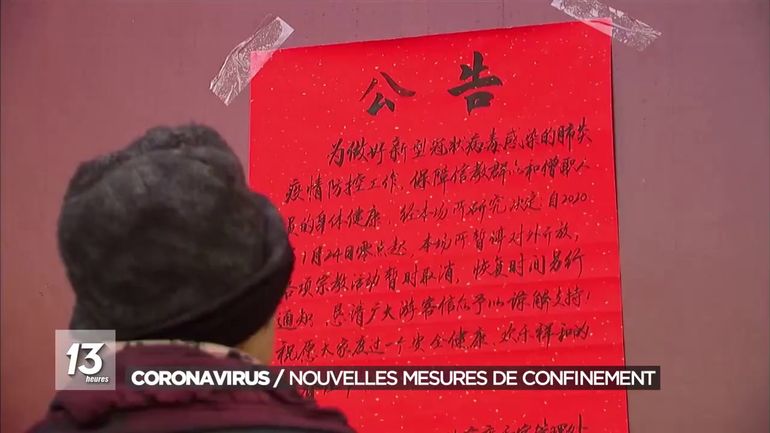 公告
为做好新型冠状病毒感染的肺炎
疫情防控工作，保障信教群众和僧职人
员的身体健康，经本场所研究决定：自2020
1月24日零点起，本场所暂调对外开放，
各项宗教活动暂时取消，恢复时间另行
通知，恳请广大游客信众予以谅解支持！
祝愿大家度过一个安全健康、欢乐祥和的
13 heures
CORONAVIRUS / NOUVELLES MESURES DE CONFINEMENT